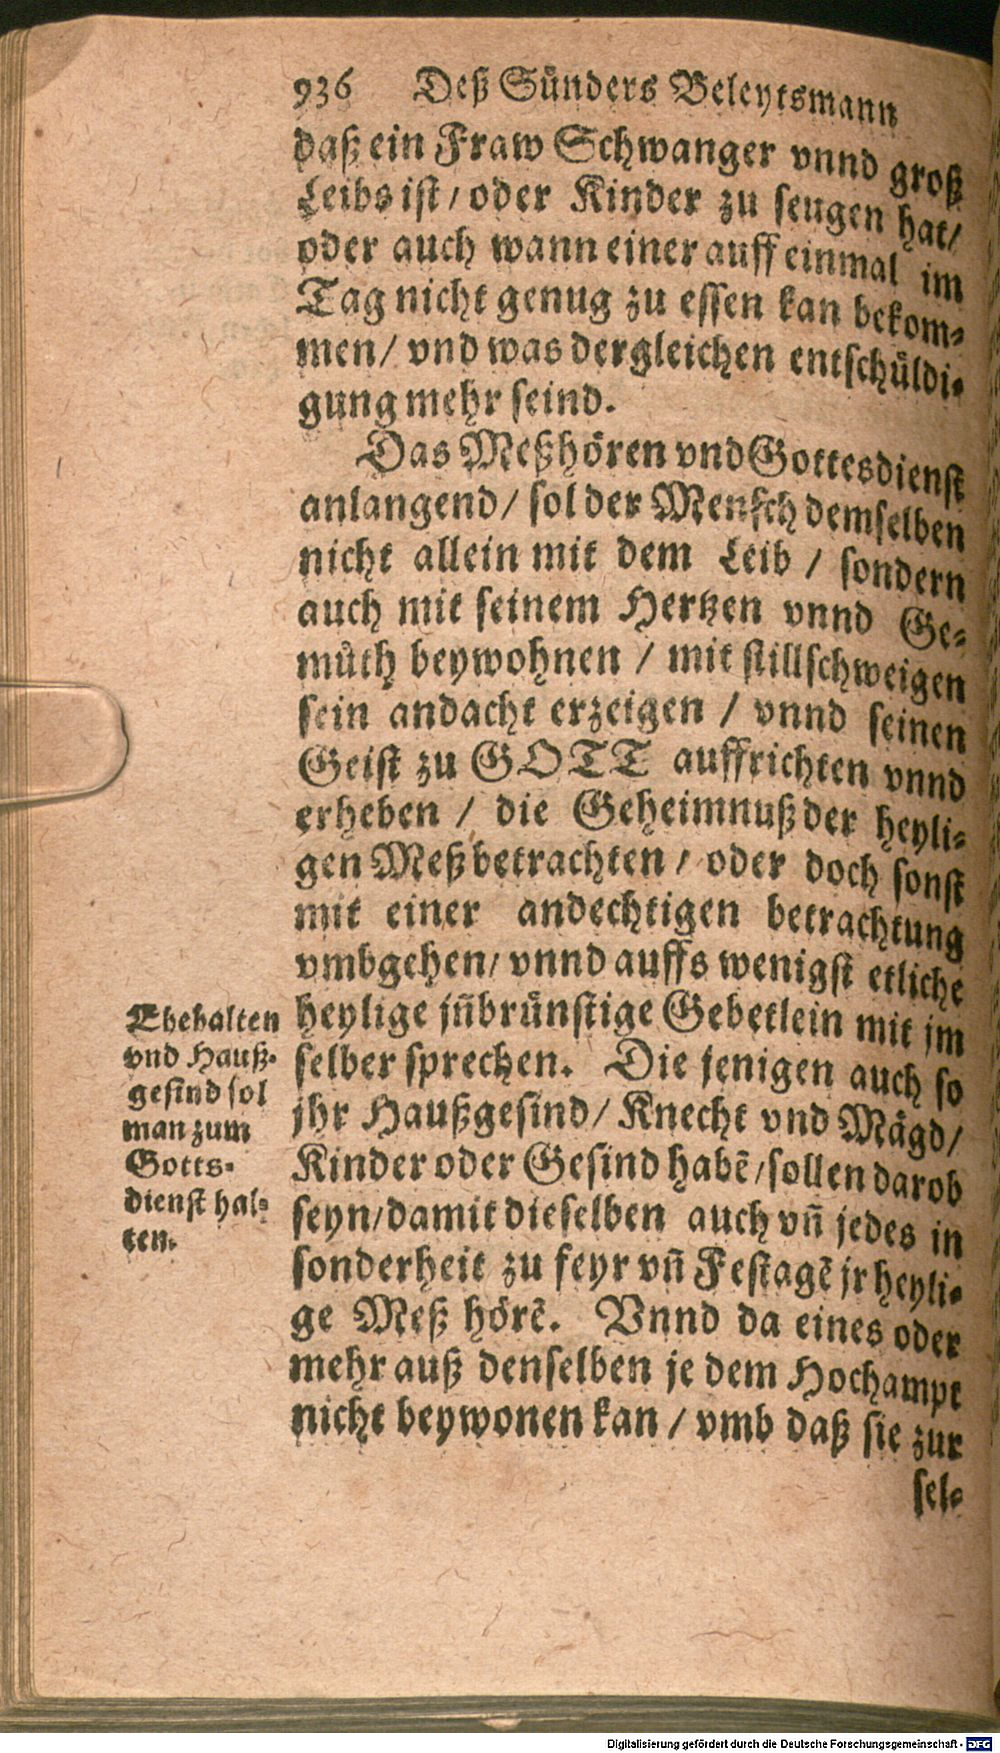 936 Deß Sünders Beleytsmann
daß ein Fraw Schwanger vnnd groß
Leibs ist / oder Kinder zu seugen hat /
oder auch wann einer auff einmal im
Tag nicht genug zu essen kan bekom⸗
men / vnd was dergleichen entschüldi⸗
gung mehr seind.
Das Meßhören vnd Gottesdienst
anlangend / sol der Mensch demselben
nicht allein mit dem Leib / sondern
auch mit seinem Hertzen vnnd Ge⸗
müth beywohnen / mit stillschweigen
sein andacht erzeigen / vnnd seinen
Geist zu GOTT auffrichten vnnd
erheben / die Geheimnuß der heyli⸗
gen Meß betrachten / oder doch sonst
mit einer andechtigen betrachtung
vmbgehen / vnnd auffs wenigst etliche
heylige jñbrünstige Gebetlein mit jm
selber sprechen. Die jenigen auch so
jhr Haußgesind / Knecht vnd Mägd /
Kinder oder Gesind habē / sollen darob
seyn / damit dieselben auch vñ jedes in
sonderheit zu feyr vñ Festagē jr heyli⸗
ge Meß hörē. Vnnd da eines oder
mehr auß denselben je dem Hochampt
nicht beywonen kan / vmb daß sie zur
sel⸗
Ehehalten
vnd Hauß⸗
gesind sol
man zum
Gotts⸗
dienst hal⸗
ten.
Digitalisierung gefördert durch die Deutsche Forschungsgemeinschaft - DFG